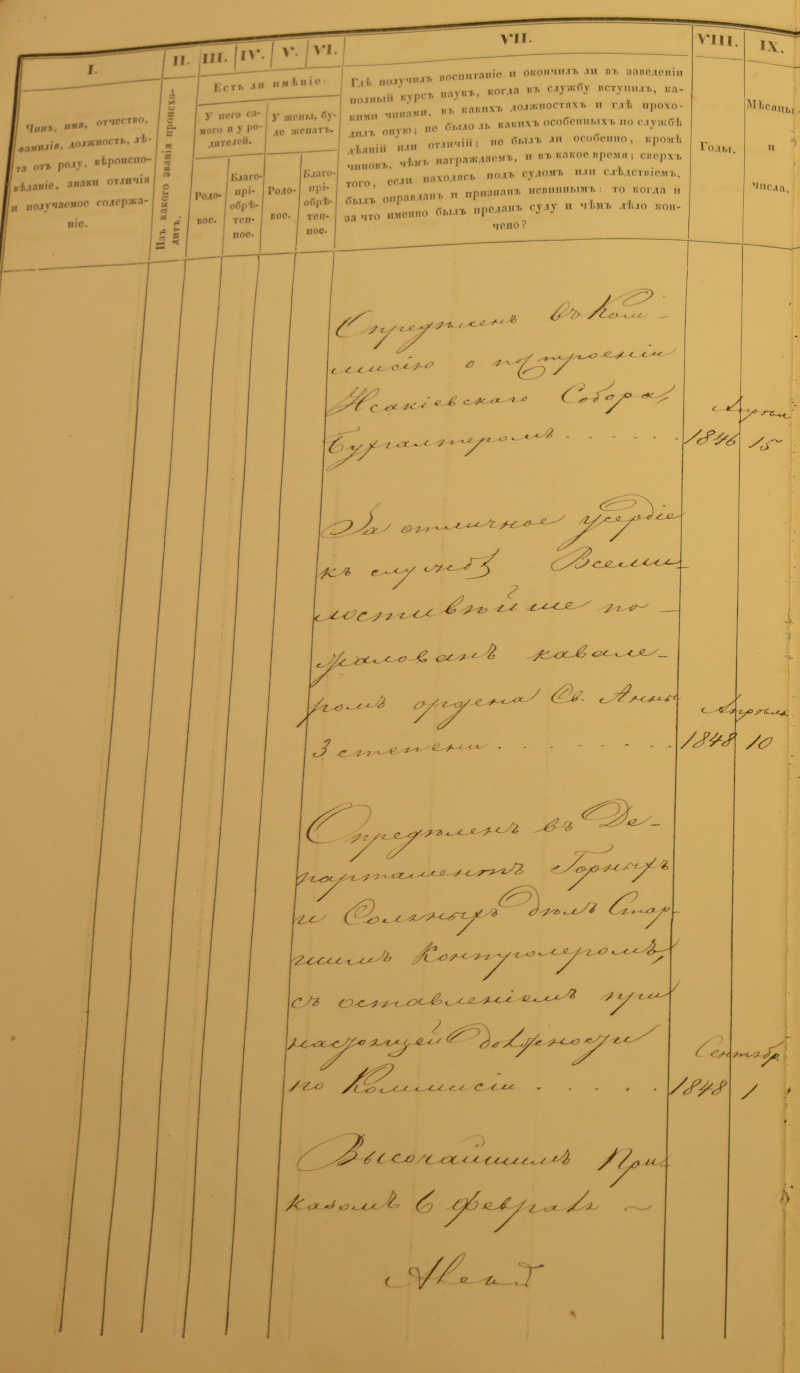 I.
II.
III.
IV.
V.
VI.
VII.
VIII.
IX.
Чинъ, имя, отчество,
фамилія, должность, лѣ-
та отъ роду, вѣроиспо-
вѣданіе, знаки отличія
и получаемое содержа-
ніе.
Изъ какого званія происхо-
дитъ.
Есть ли имѣніе:
У него са-
маго и у ро-
дителей.
У жены, бу-
де женатъ.
Родо-
вое.
Благо-
прі-
обрѣ-
тен-
ное.
Родо-
вое.
Благо-
прі-
обрѣ-
тен-
ное.
Гдѣ получилъ воспитаніе и окончилъ ли въ заведеніи
полный курсъ наукъ, когда въ службу вступилъ, ка-
кими чинами, въ какихъ должностяхъ и гдѣ прохо-
дилъ оную; не было ль какихъ особенныхъ по службѣ
дѣяній или отличій; не былъ ли особенно, кромѣ
чиновъ, чѣмъ награждаемъ, и въ какое время; сверхъ
того, если находясь подъ судомъ или слѣдствіемъ,
былъ оправданъ и признанъ невиннымъ: то когда и
за что именно былъ преданъ суду и чѣмъ дѣло кон-
чено?
Годы.
Мѣсяцы
и
числа.
Опредѣленъ въ Ком-
мисію о построеніи
Исакіевскаго Собора,
Бухгалтеромъ . . . . . 1846 Апрѣля 15
За отличное усердіе
къ службѣ Всеми-
лостивѣйше по-
жалованъ кавале-
ромъ ордена Св. Анны
3 степени . . . . . . . 1848 Апрѣля 10
Опредѣленъ въ Де-
партаментъ Горныхъ
и Соляныхъ Дѣлъ Стар-
шимъ Контролеромъ,
съ оставленіемъ при
настоящей Должности
по Коммисіи . . . . . 1848 Сентябр 1
Высочайшимъ При-
казомъ 6 февраля